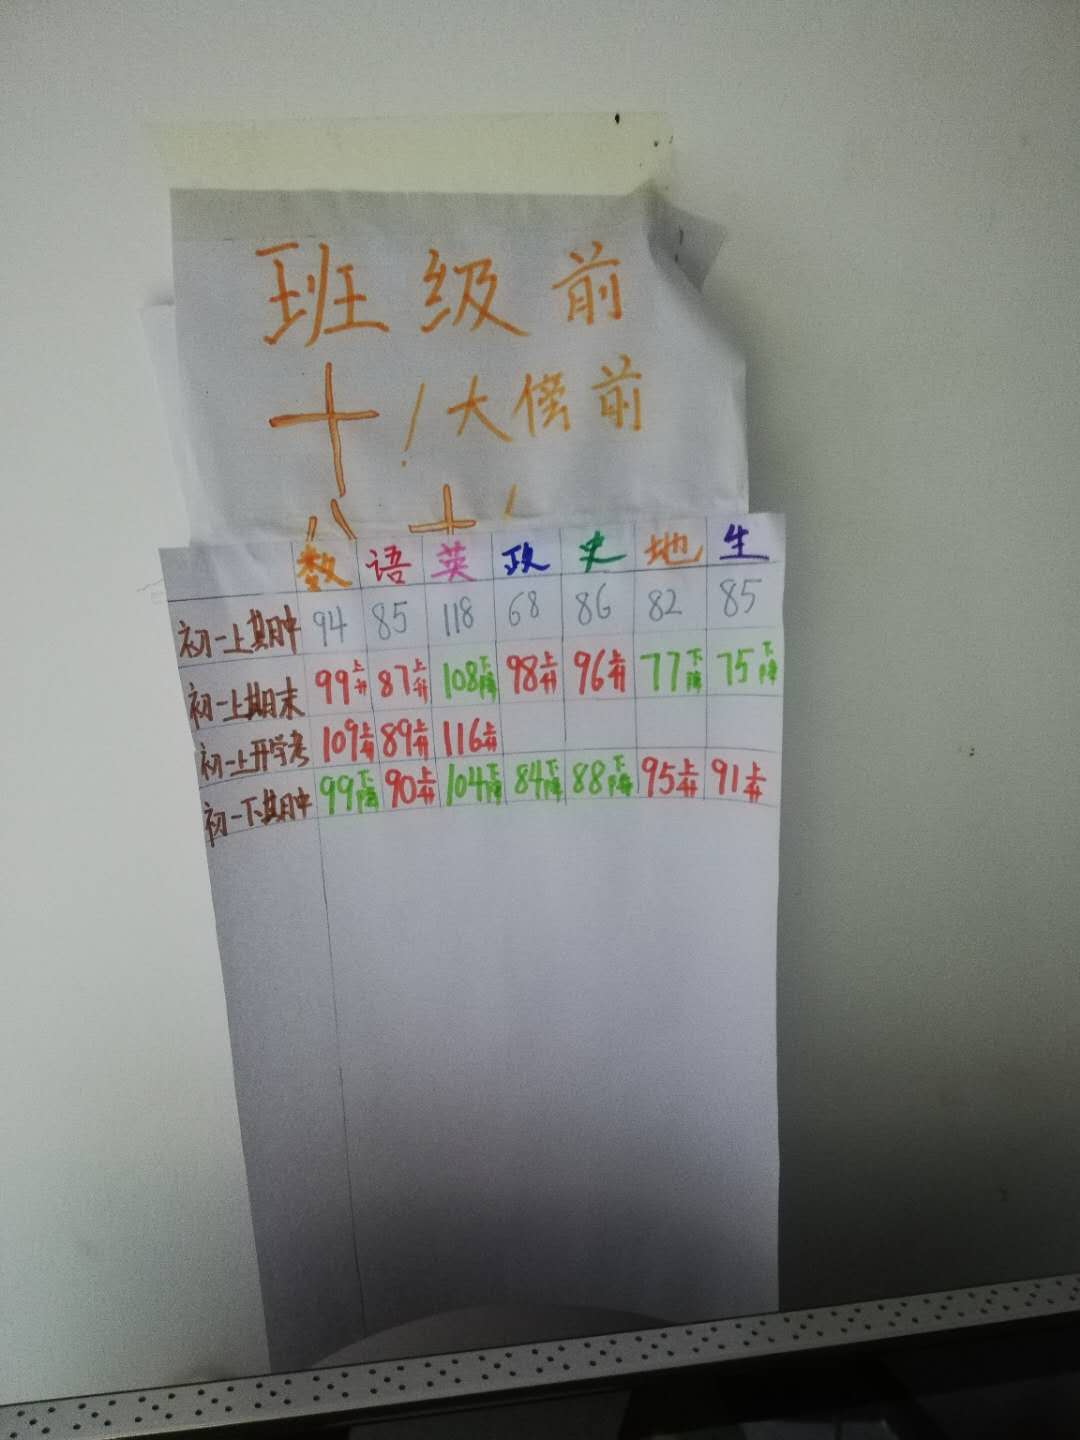 班级前
十！大榜前
八十！
数 语 英 政 史 地 生
初一上期中 94 85 118 68 86 82 85
初一上期末 99上升 87上升 108下降 98上升 96上升 77下降 75下降
初一上开学考 109上升 89上升 116上升
初一下期中 99下降 90上升 104下降 84下降 88下降 95上升 91上升